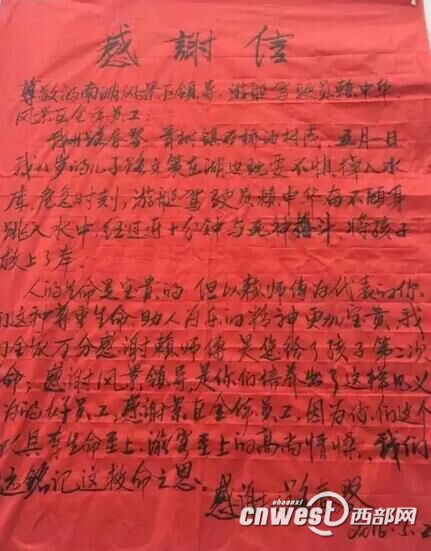 感謝信
尊敬的南湖风景区领导、游艇驾驶员赖中华、
风景区全体员工:
村民,五月一日
我八岁的儿子 文策在湖边玩耍不慎掉入水
库,危急时刻,游艇驾驶员赖中华奋不顾身
跳入水中,经过近十分钟与死神搏斗,将孩子
救上了岸。
人的生命是宝贵的,但以赖师傅为代表的你
们这种尊重生命、助人为乐的精神更加宝贵,我
们全家万分感谢赖师傅,是您给了孩子第二次
命;感谢风景领导,是你们培养出了这样见义
为的好员工,感谢景区全体员工,因为你们这个
具有生命至上、游客至上的高尚情操,我们
远铭记这救命之恩。感谢人
2016.5.2
cnwest西部网